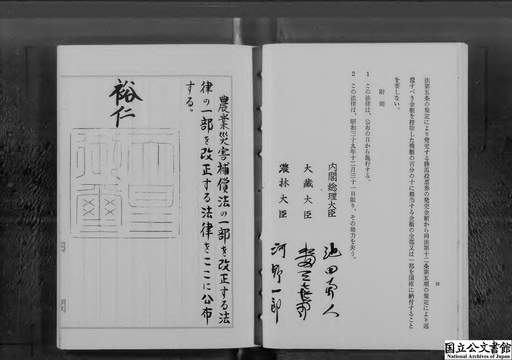 法第五条の規定により発売する勝馬投票券の発売金額から同法第十二条第五項の規定により返
還すべき金額を控除した残額の百分の十に相当する金額の全部又は一部を国庫に納付すること
を要しない。
附 則
1 この法律は、公布の日から施行する。
2 この法律は、昭和三十九年十二月三十一日限り、その効力を失う。
内閣総理大臣 池田勇人
大蔵大臣
農林大臣 河野一郎
農業災害補償法の一部を改正する法
律の一部を改正する法律をここに公布
する。
裕仁
国立公文書館
National Archives of Japan